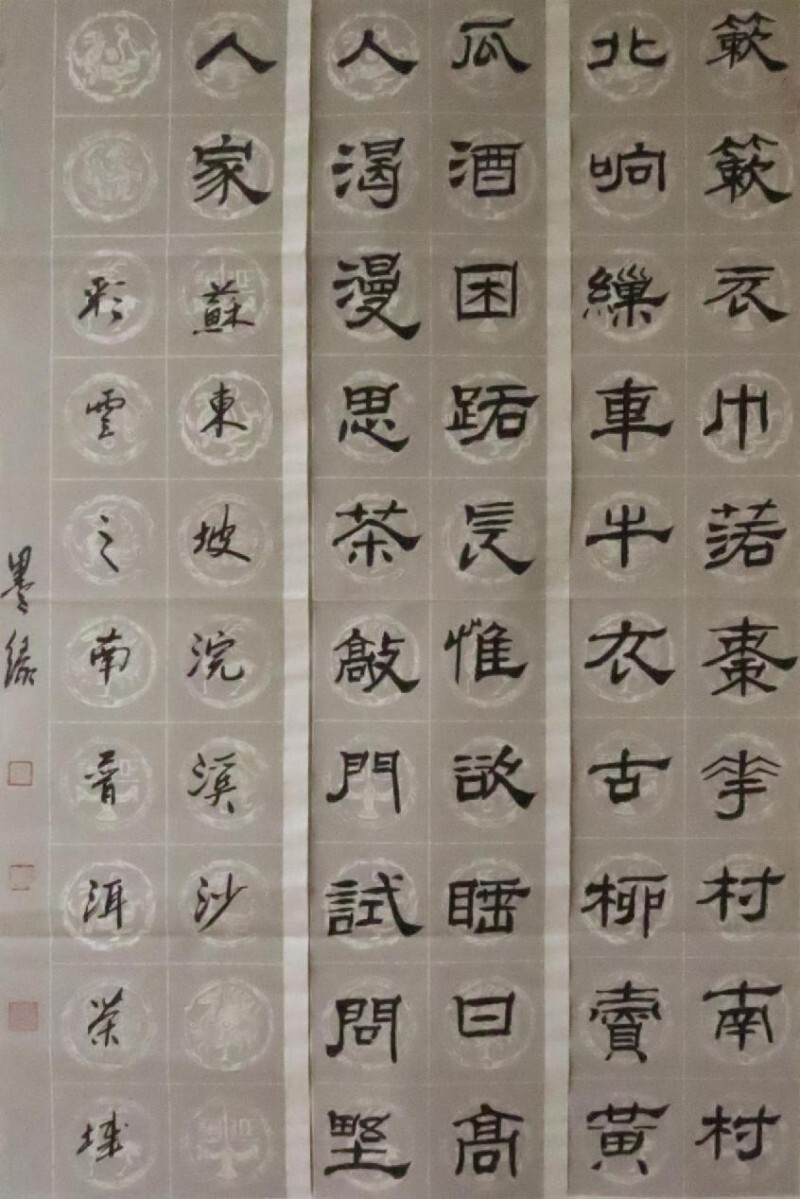 簌簌衣巾落棗花村南村
北响繅車牛衣古柳賣黃
瓜酒困路長惟欲睡日高
人渴漫思茶敲門試問野
人家 蘇東坡浣溪沙
彩雲之南普洱茶城
墨緣